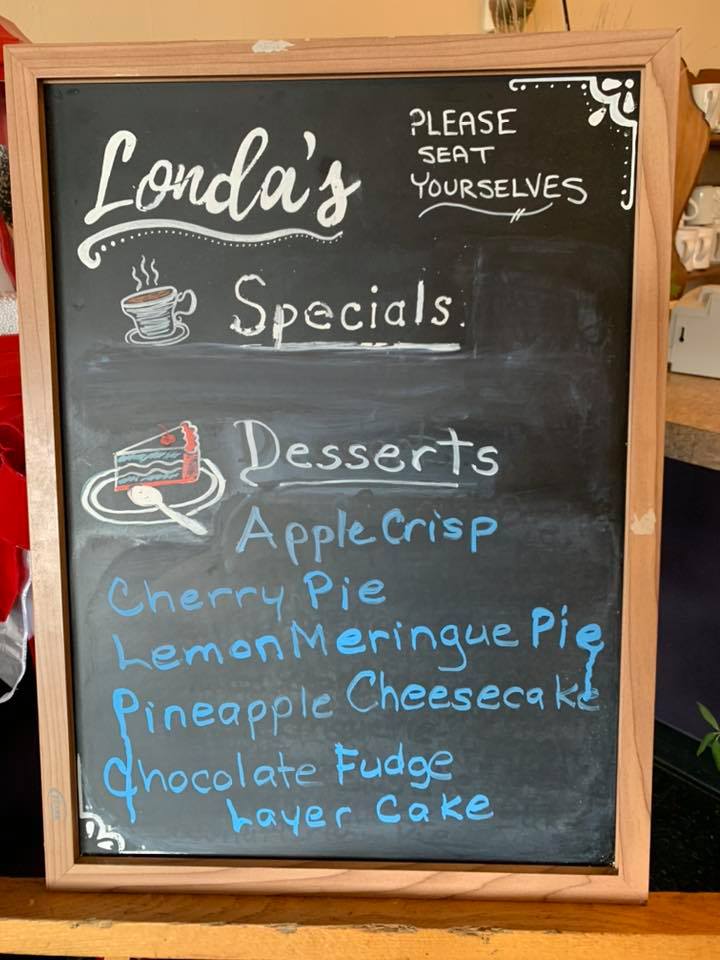 Londa's
PLEASE
SEAT
YOURSELVES
Specials
Desserts
Apple Crisp
Cherry Pie
Lemon Meringue Pie
Pineapple Cheesecake
Chocolate Fudge
Layer Cake